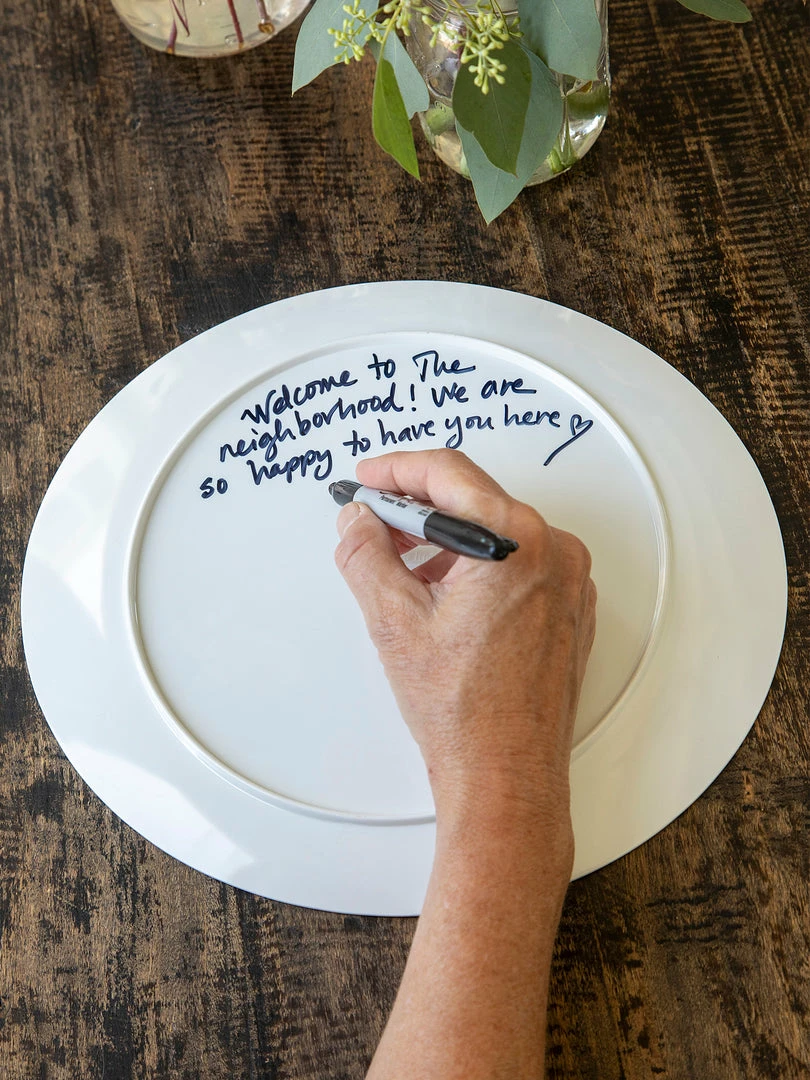 Welcome to The
neighborhood! We are
so happy to have you here ♡